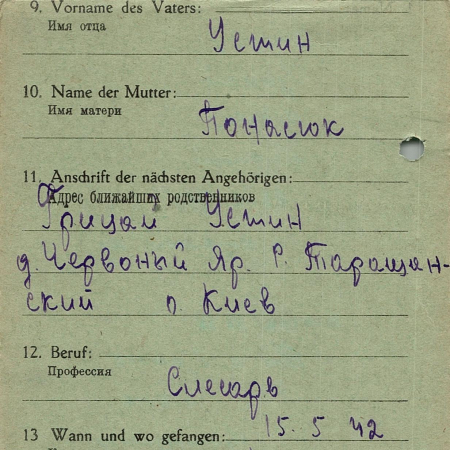 9. Vorname des Vaters:
Имя отца
Устин
10. Name der Mutter:
Имя матери
Понасюк
11. Anschrift der nächsten Angehörigen:
Адрес ближайших родственников
Грицай Устин
д. Червоный Яр. Р. Таращан-
ский о. Киев
12. Beruf:
Профессия
Слесарь
15. 5 42
13 Wann und wo gefangen: